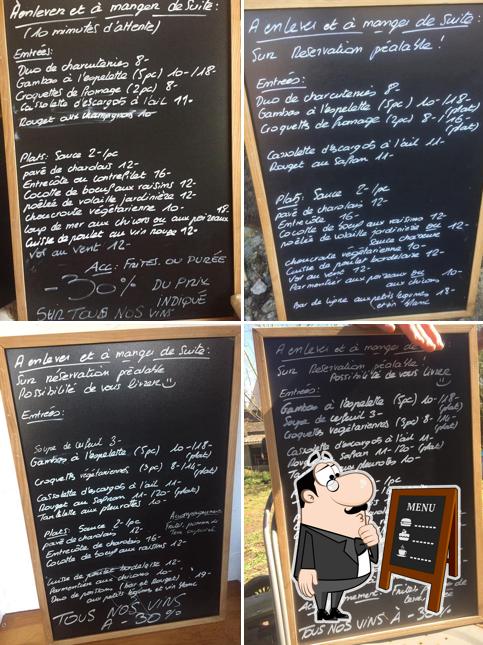 A enlever et à manger de suite:
(10 minutes d'attente)
Entrées:
Duo de charcuteries 8-
Gambas à l'espelette (5pc) 10-/18-
Croquettes de fromage (2pc) 8-
Cassolette d'escargots à l'ail 11-
Rouget aux champignons 10-
Plats: Sauce 2-/pc
pavé de charolais 12-
Entrecôte ou contrefilet 16-
Cocotte de boeuf aux raisins 12-
poêlée de volaille jardinière 12-
choucroute végétarienne 10-
Loup de mer aux chicons ou aux poireaux 18-
Cuisse de poulet au vin rouge 12-
Vol au vent 12-
Acc: Frites ou purée
-30% DU PRIX
INDIQUÉ
SUR TOUS NOS VINS
A enlever et à manger de suite:
Sur Reservation préalable!
Entrées:
Duo de charcuteries 8-
Gambas à l'espelette (5pc) 10-/18-
(plat)
Croquettes de fromage (2pc) 8-/16-
(plat)
Cassolette d'escargots à l'ail 11-
Rouget au safran 11-
Plats: Sauce 2-/pc
pavé de charolais 12-
Entrecôte 16-
Cocotte de boeuf aux raisins 12-
poêlée de volaille jardinière ou 12-
sauce chasseur
choucroute végétarienne 10-
Cuisse de poulet bordelaise 12-
Vol au vent 12-
Parmentier aux poireaux ou 10-
aux chicons
Bar de ligne aux petits légumes 18-
et vin blanc
A enlever et à manger de suite:
Sur réservation préalable
Possibilité de vous livrer
Entrées:
Soupe de cerfeuil 3-
Gambas à l'espelette (5pc) 10-/18-
(plat)
Croquettes végétariennes (3pc) 8-/16-
(plat)
Cassolette d'escargots à l'ail 11-
Rouget au safran 11-/20- (plat)
Tartelette aux pleurotes 10-
Accompagnements
Plats: Sauce 2-/pc
pavé de charolais 12-
Entrecôte de charolais 16-
Cocotte de boeuf aux raisins 12-
Cuisse de poulet bordelaise 12-
Parmentier aux chicons 10-
Duo de poissons (bar et rouget) 19-
aux petits légumes et vin blanc
TOUS NOS VINS
À -30%
A enlever et à manger de
Sur Reservation préalable!
Possibilité de vous livrer
Entrées:
Gambas à l'espelette (5pc) 10-/18-
(plat)
Soupe de cerfeuil 3-
Croquettes végétariennes (3pc) 8-/16-
(plat)
Cassolette d'escargots à l'ail 11-
safran 11-/20- (plat)
pleurotes 10-
MENU
TOUS NOS VINS À -30%